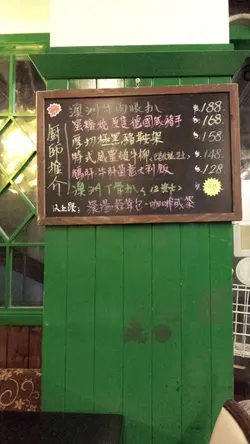 廚師推介
澳洲牛肉眼扒 $188
蜜糖燒原隻德國咸豬手 $168
厚切極黑豬鞍架 $158
特式威靈頓牛柳 $148
鵝肝牛肝菌意大利飯 $128
澳洲T骨扒 (12安士)
以上跟: 湯 餐包 咖啡或茶